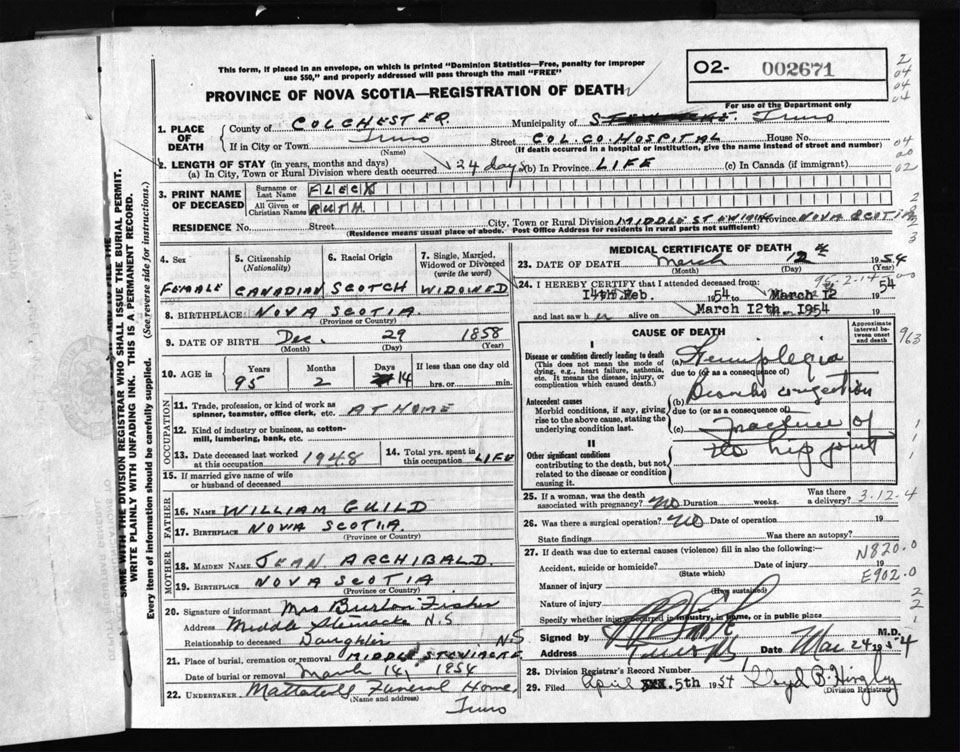 This form, if placed in an envelope, on which is printed "Dominion Statistics—Free, penalty for improper
use $50," and properly addressed will pass through the mail "FREE"
O2- 002671
PROVINCE OF NOVA SCOTIA—REGISTRATION OF DEATH
For use of the Department only
1. PLACE OF DEATH
County of COLCHESTER Municipality of Truro
If in City or Town Truro (Name) Street COL. CO. HOSPITAL House No.
(If death occurred in a hospital or institution, give the name instead of street and number)
2. LENGTH OF STAY (in years, months and days)
(a) In City, Town or Rural Division where death occurred 24 days (b) In Province LIFE (c) In Canada (if immigrant)
3. PRINT NAME OF DECEASED
Surname or Last Name FLECK
All Given or Christian Names RUTH
RESIDENCE No. Street City, Town or Rural Division MIDDLE STEWIACK Province NOVA SCOTIA
(Residence means usual place of abode. Post Office Address for residents in rural parts not sufficient)
4. Sex FEMALE
5. Citizenship (Nationality) CANADIAN
6. Racial Origin SCOTCH
7. Single, Married, Widowed or Divorced (write the word) WIDOWED
8. BIRTHPLACE NOVA SCOTIA
(Province or Country)
9. DATE OF BIRTH Dec. 29 1858
(Month) (Day) (Year)
10. AGE in Years 95 Months 2 Days 14 If less than one day old hrs. or min.
OCCUPATION
11. Trade, profession, or kind of work as spinner, teamster, office clerk, etc. AT HOME
12. Kind of industry or business, as cotton-mill, lumbering, bank, etc.
13. Date deceased last worked at this occupation 1948
14. Total yrs. spent in this occupation LIFE
15. If married give name of wife or husband of deceased
FATHER
16. NAME WILLIAM GUILD
17. BIRTHPLACE NOVA SCOTIA
(Province or Country)
MOTHER
18. MAIDEN NAME JEAN ARCHIBALD
19. BIRTHPLACE NOVA SCOTIA
(Province or Country)
20. Signature of informant Mrs Burton Fisher
Address Middle Stewiacke N.S
Relationship to deceased Daughter N.S.
21. Place of burial, cremation or removal MIDDLE STEWIACKE
Date of burial or removal March 14, 1954
22. UNDERTAKER Mattatall's Funeral Home,
(Name and address)
Truro
MEDICAL CERTIFICATE OF DEATH
23. DATE OF DEATH March 12th 1954
(Month) (Day) (Year)
95-2-14
24. I HEREBY CERTIFY that I attended deceased from:
14th Feb. 1954 to March 12 1954
and last saw her alive on March 12th. 1954
CAUSE OF DEATH
Approximate interval between onset and death
I
Disease or condition directly leading to death
(This does not mean the mode of dying, e.g., heart failure, asthenia, etc. It means the disease, injury, or complication which caused death.)
(a) Hemiplegia
due to (or as a consequence of)
Antecedent causes
Morbid conditions, if any, giving rise to the above cause, stating the underlying condition last.
(b) Broncho congestion
due to (or as a consequence of)
(c) Fracture of
the hip joint
II
Other significant conditions
contributing to the death, but not related to the disease or condition causing it.
963
25. If a woman, was the death associated with pregnancy? No Duration weeks. Was there a delivery? 3.12.4
26. Was there a surgical operation? No Date of operation 19
State findings Was there an autopsy?
27. If death was due to external causes (violence) fill in also the following:—
N820.0
Accident, suicide or homicide? Date of injury 19
(State which)
E902.0
Manner of injury
(How sustained)
Nature of injury
Specify whether injury occurred in industry, in home, or in public place
Signed by M.D.
Address Date Mar 24 1954
28. Division Registrar's Record Number
29. Filed April 5th 1954 Lloyd B. Hingley
(Division Registrar)
WRITE PLAINLY WITH UNFADING INK. THIS IS A PERMANENT RECORD.
SAME WITH THE DIVISION REGISTRAR WHO SHALL ISSUE THE BURIAL PERMIT.
Every item of information should be carefully supplied. (See reverse side for instructions.)